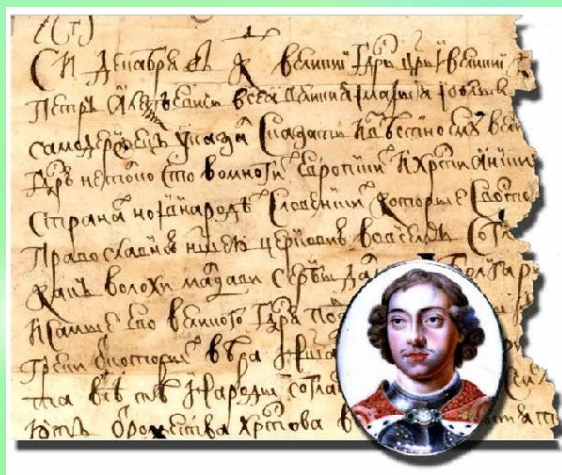 СИ Декабря в К великии Гдрь црь и великии
Петръ Алеѯѣевичь всеа великия и малыя и бѣлыя
самодержецъ указа сказать извесно ему вели
Гдрю не толко что во многи европски хрстиянски
страна но и в народѣ словенски которые с восто
православною нашею церковию во всемъ согл
какъ волохи малдави сербы далма болгары
и самые его великого Гдря по
греки от которы вѣра наша
та всѣ тѣ народы согла
ютъ от рожества Христова в